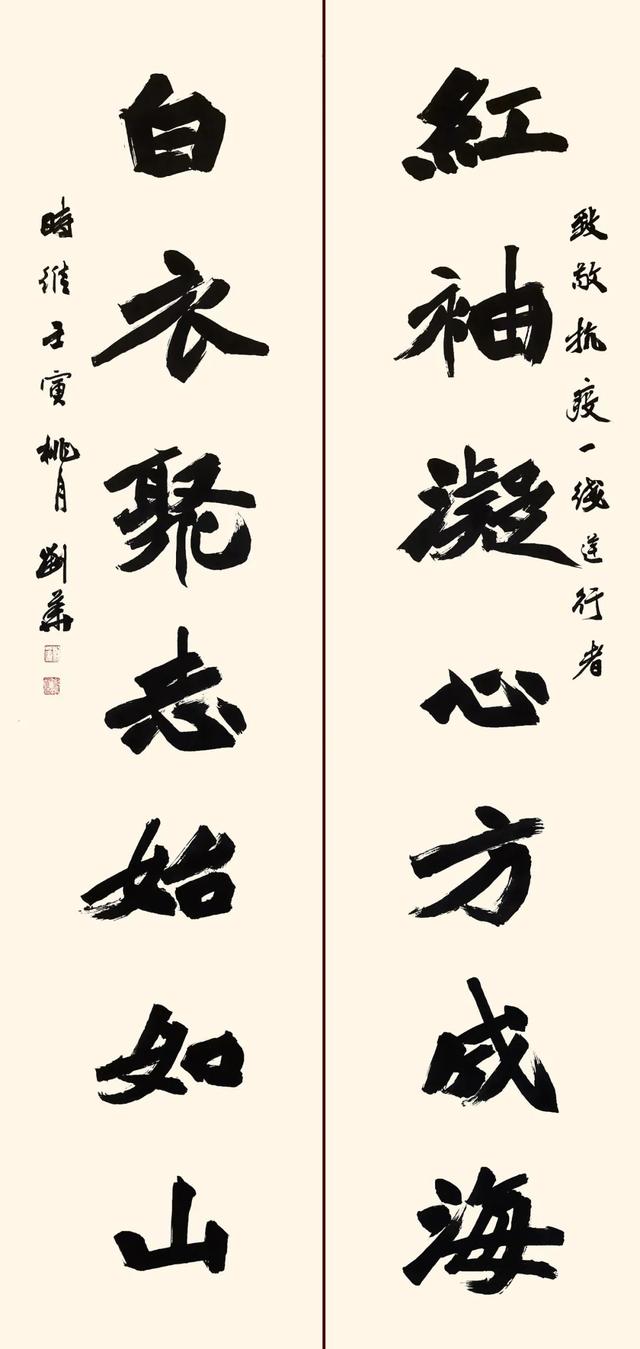 致敬抗疫一线逆行者
紅袖凝心方成海
白衣聚志始如山
時維壬寅桃月劉華